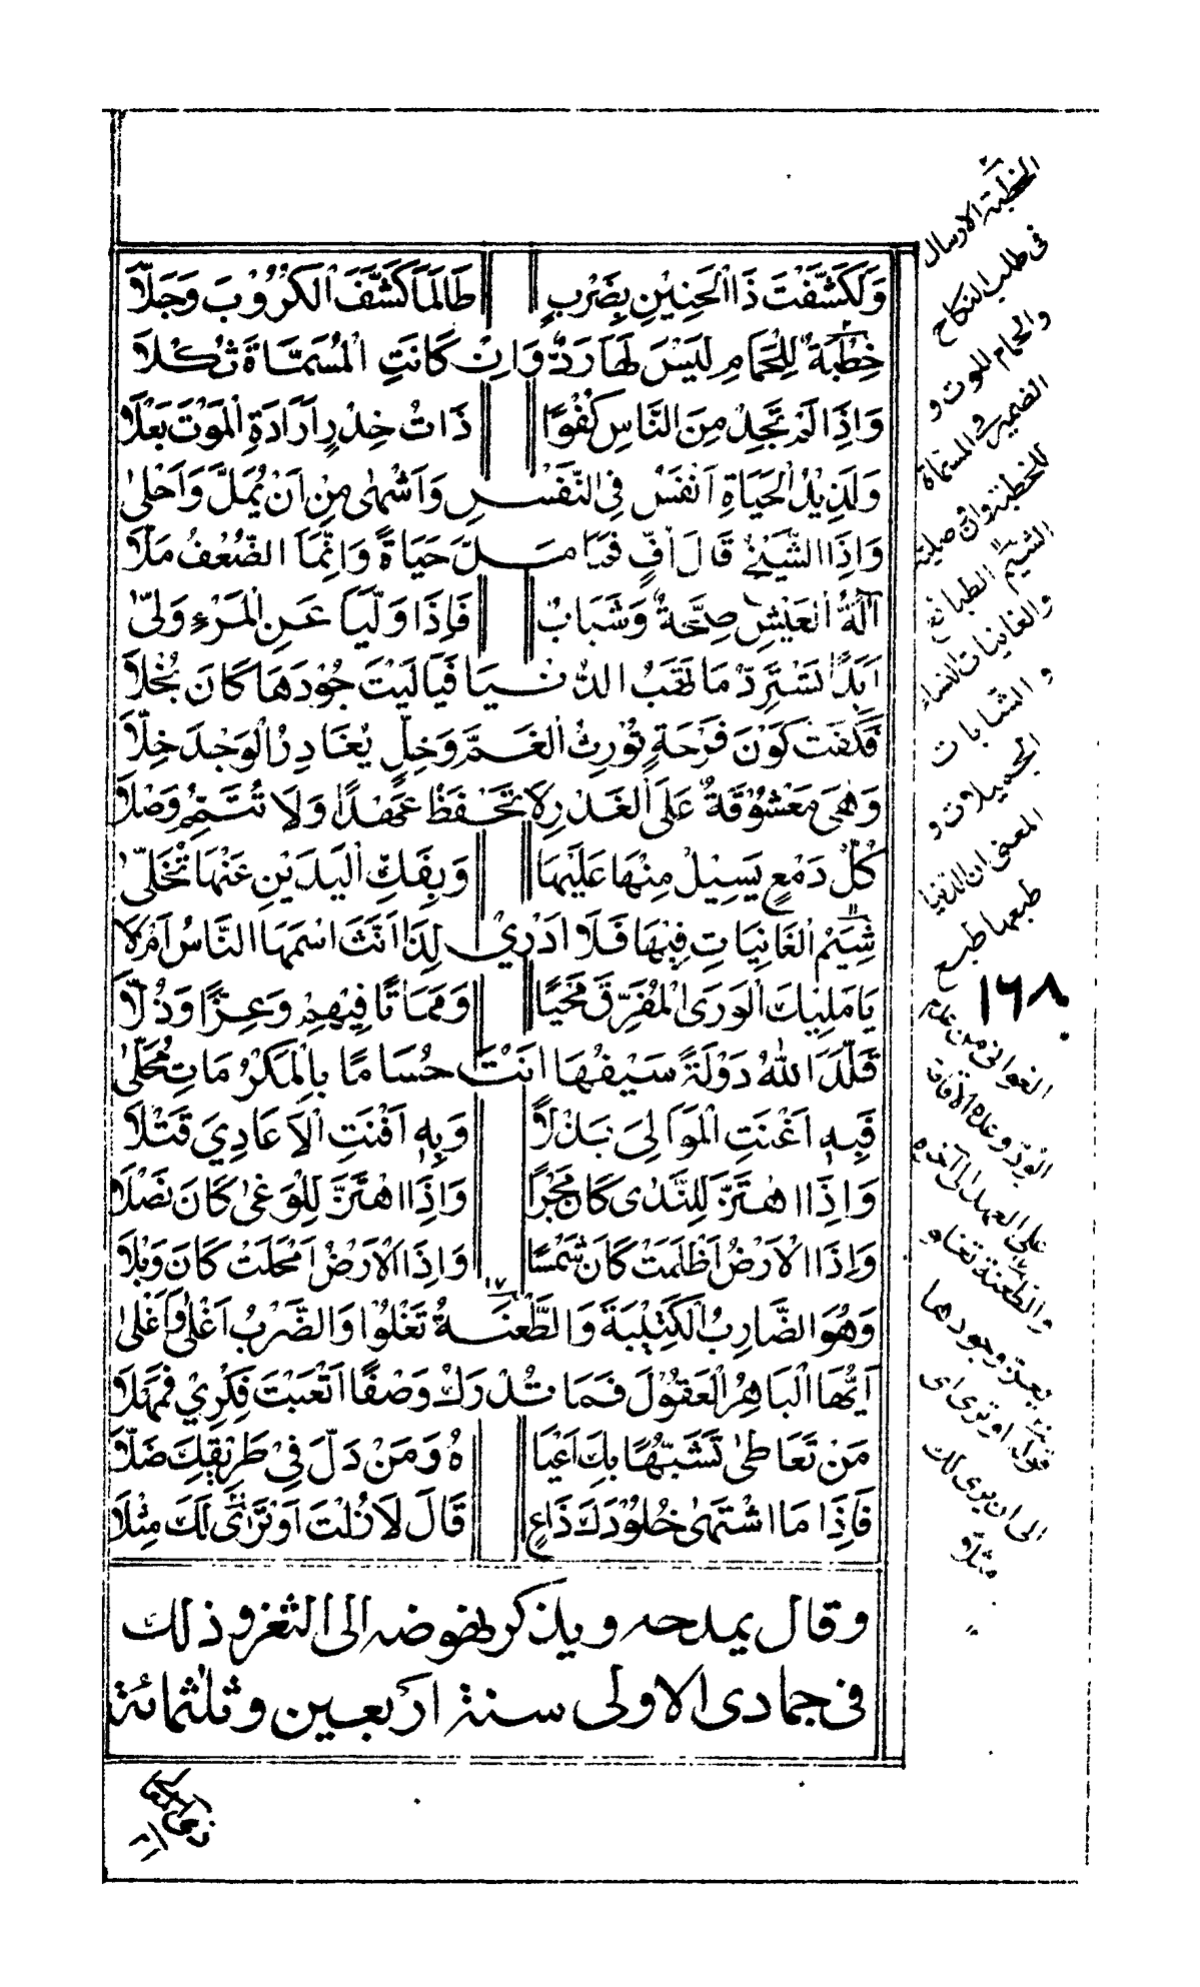 وَلَكَشَّفْتَ ذَا الْحَنِيْنِ بِضَرْبٍ طَالَمَا كَشَّفَ الْكُرُوْبَ وَجَلّٰا
خِطْبَةٌ لِلْحِمَامِ لَيْسَ لَهَا رَدٌّ وَاِنْ كَانَتِ الْمُسَمَّاةَ ثُكْلَا
وَاِذَا لَمْ تَجِدْ مِنَ النَّاسِ كُفْوًا ذَاتُ خِدْرٍ اَرَادَةِ الْمَوْتَ بَعْلَا
وَلَذِيْذُ الْحَيَاةِ اَنْفَسُ فِي النَّفْسِ وَاَشْهٰى مِنْ اَنْ يُمَلَّ وَاَحْلٰى
وَاِذَا الشَّيْخُ قَالَ اُفٍّ فَمَا مَلَّ حَيَاةً وَاِنَّمَا الضُّعْفُ مَلَّا
اٰلَةُ الْعَيْشِ صِحَّةٌ وَشَبَابٌ فَاِذَا وَلَّيَا عَنِ الْمَرْءِ وَلّٰى
اَبَدًا تَسْتَرِدُّ مَا تَهَبُ الدُّنْيَا فَيَالَيْتَ جُوْدَهَا كَانَ بُخْلَا
فَكَفَتْ كَوْنَ فَرْحَةٍ تُوْرِثُ الْغَمَّ وَخِلٍّ يُغَادِرُ الْوَجْدَ خِلَّا
وَهْيَ مَعْشُوْقَةٌ عَلَى الْغَدْرِ لَا تَحْفَظُ عَهْدًا وَلَا تُتَمِّمُ وَصْلَا
كُلُّ دَمْعٍ يَسِيْلُ مِنْهَا عَلَيْهَا وَبِفَكِّ الْيَدَيْنِ عَنْهَا تُخَلّٰى
شِيَمُ الْغَانِيَاتِ فِيْهَا فَلَا اَدْرِيْ لِذَا اَنَّثَ اسْمَهَا النَّاسُ اَمْ لَا
يَا مَلِيْكَ الْوَرَى الْمُفَرِّقَ مَحْيًا وَمَمَاتًا فِيْهِمْ وَعِزًّا وَذُلَّا
قَلَّدَ اللهُ دَوْلَةً سَيْفُهَا اَنْتَ حُسَامًا بِالْمَكْرُمَاتِ مُحَلّٰى
فَبِهٖ اَغْنَتِ الْمَوَالِيَ بَذْلًا وَبِهٖ اَفْنَتِ الْاَعَادِيَ قَتْلَا
وَاِذَا اهْتَزَّ لِلنَّدٰى كَانَ بَحْرًا وَاِذَا اهْتَزَّ لِلْوَغٰى كَانَ نَصْلَا
وَاِذَا الْاَرْضُ اَظْلَمَتْ كَانَ شَمْسًا وَاِذَا الْاَرْضُ اَمْحَلَتْ كَانَ وَبْلَا
وَهُوَ الضَّارِبُ الْكَتِيْبَةَ وَالطَّعْنَةُ تَغْلُوْا وَالضَّرْبُ اَغْلٰى وَاَغْلٰى
اَيُّهَا الْبَاهِرُ الْعَقُوْلَ فَمَا تُدْرَكُ وَصْفًا اَتْعَبْتَ فِكْرِيْ فَمَهْلَا
مَنْ تَعَاطٰى تَشَبُّهًا بِكَ اَعْيَا هُ وَمَنْ دَلَّ فِيْ طَرِيْقِكَ ضَلَّا
فَاِذَا مَا اشْتَهٰى خُلُوْدَكَ دَاعٍ قَالَ لَا زُلْتَ اَوْ تَرٰى لَكَ مِثْلَا
وقال يمدحه ويذكر نهوضه الى الثغر وذلك
فى جمادى الاولى سنة اربعين وثلثمائة
الخطبة الارسال
فى طلب النكاح
والحمام للموت و
الضمير فى المسماة
للخطبة وان صلية
الشيم الطبائع
والغانيات النساء
و الشابات
الجميلات و
المعنى ان الدنيا
طبعها طبع
١٦٨
الغوانى من عدم
الود وعدم الاقامة
على العهد الى آخره
والطعنة تغلو
يعز وجودها
قوله او ترى اى
الى ان يرى لك
مثلا